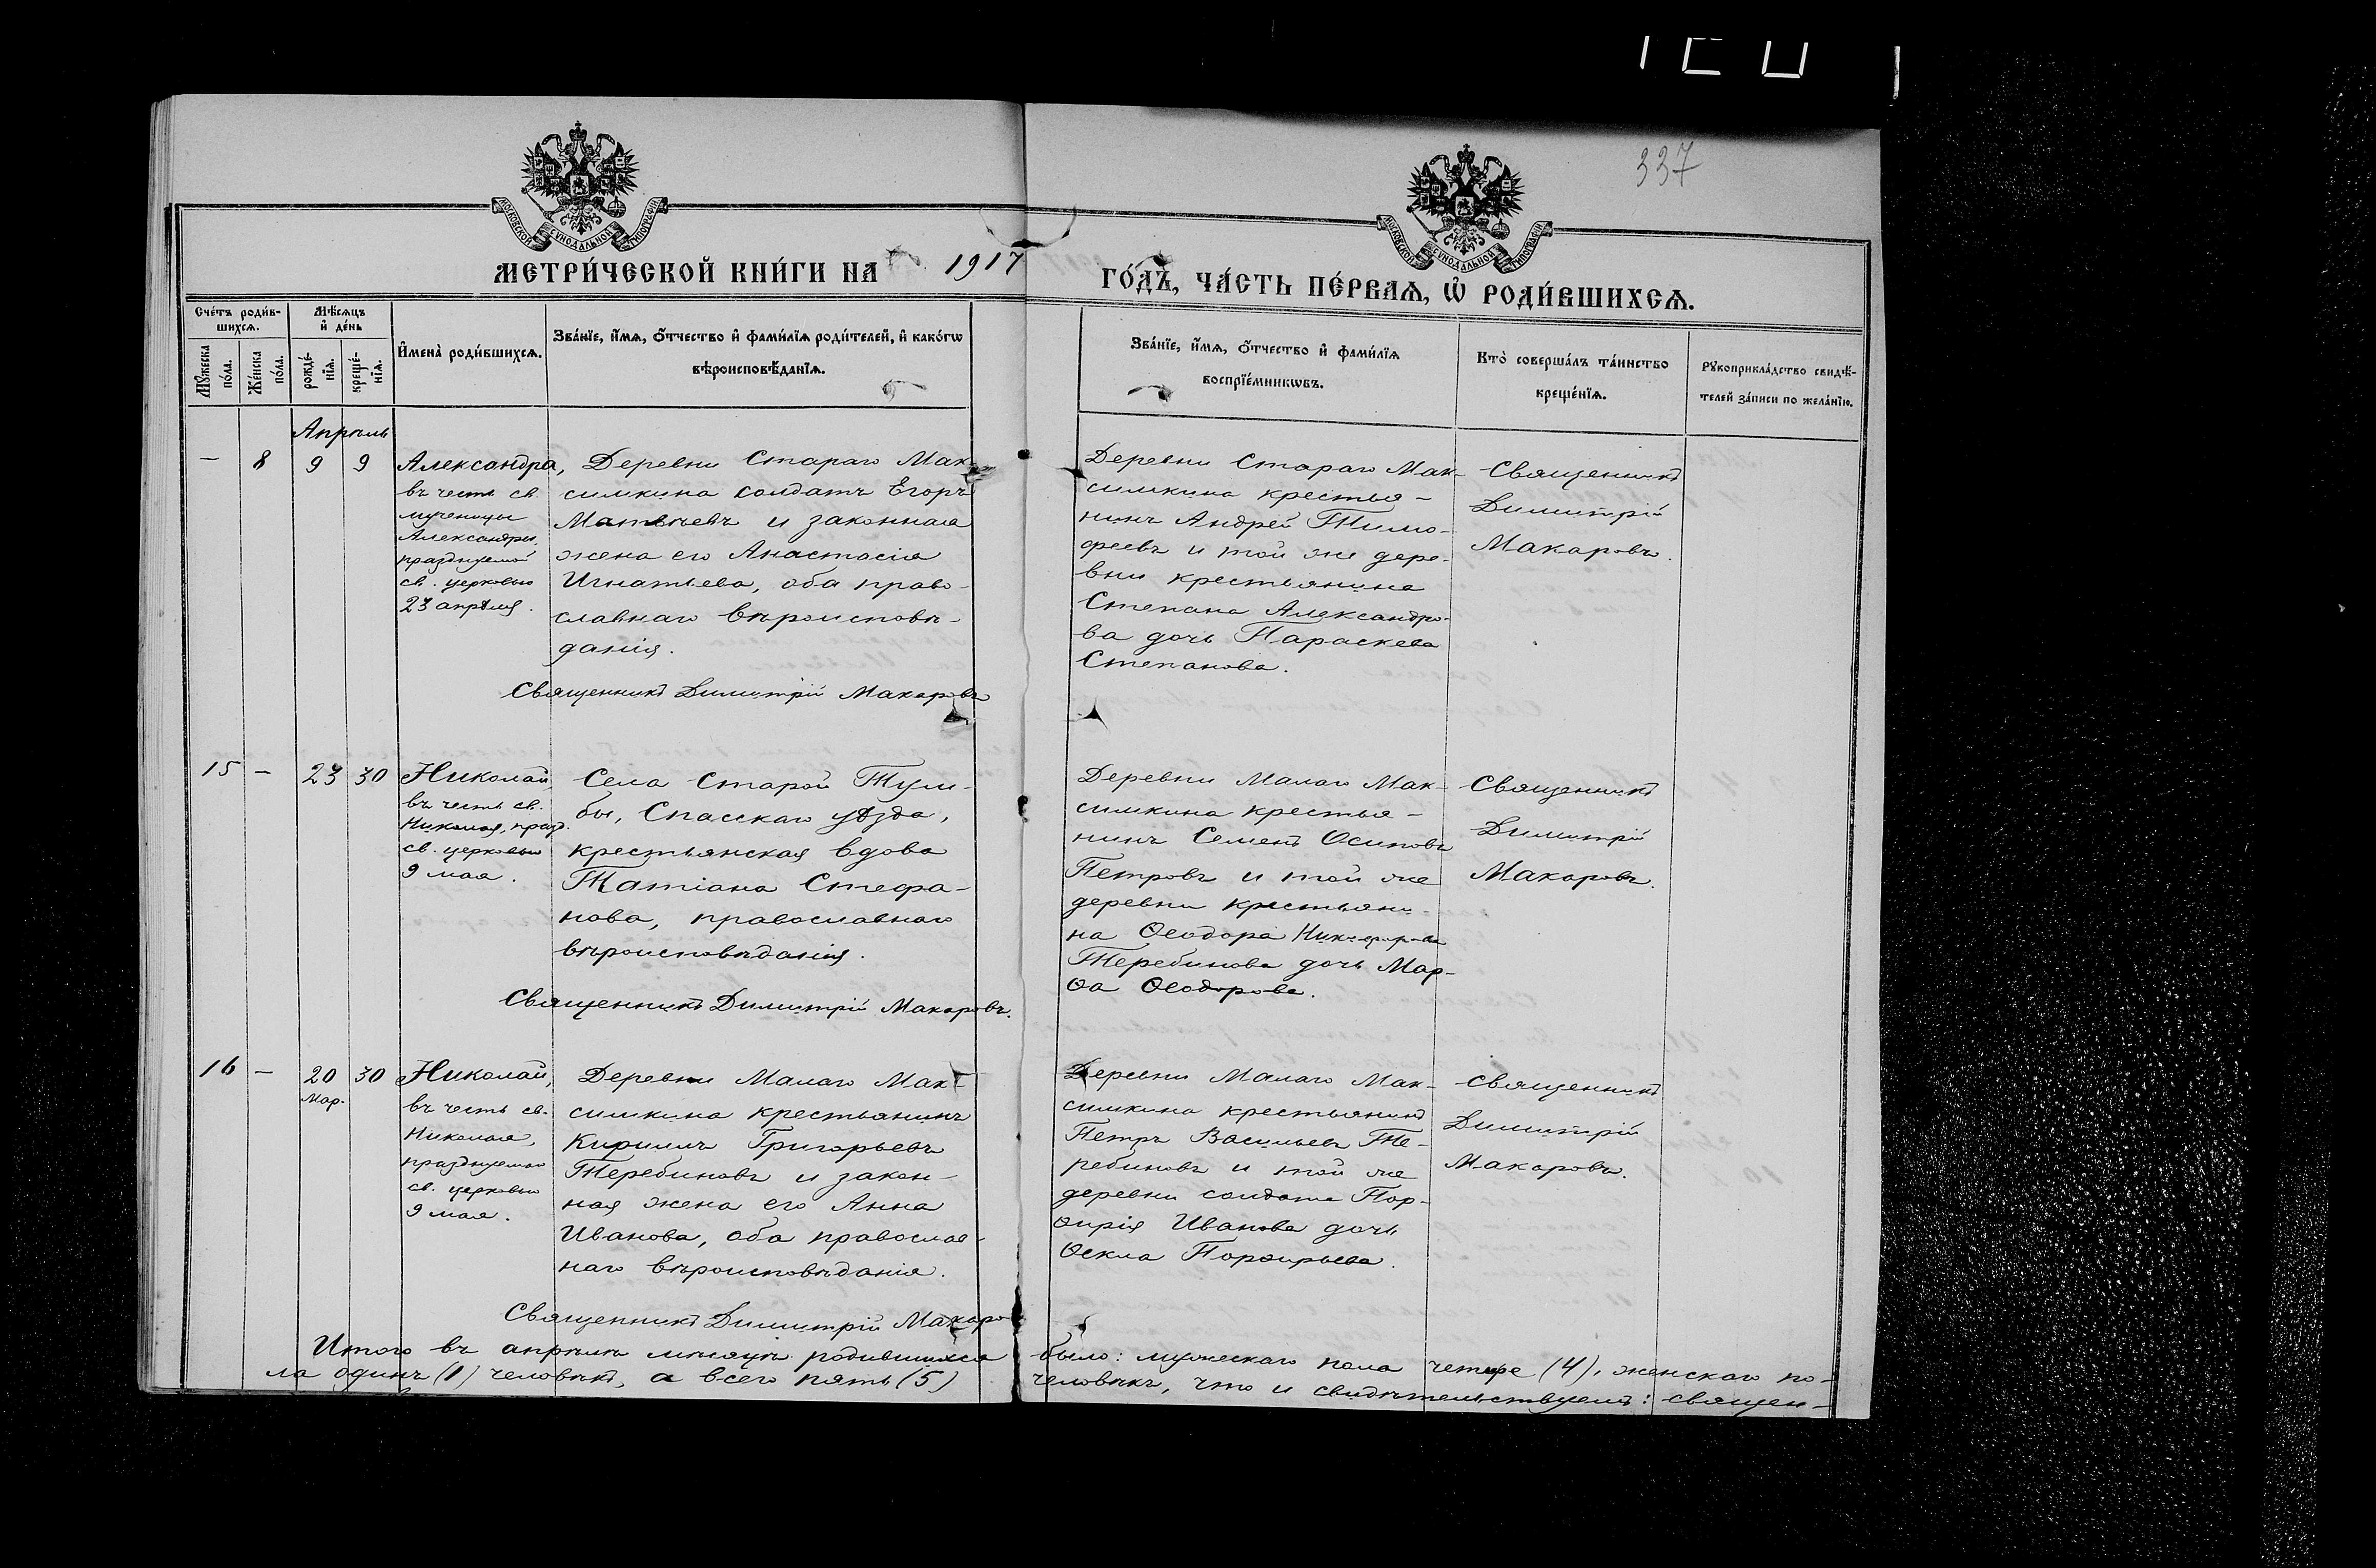 337
МОСКОВСКОЙ СУНОДАЛЬНОЙ ТИПОГРАФІИ
МОСКОВСКОЙ СУНОДАЛЬНОЙ ТИПОГРАФІИ
МЕТРИ́ЧЕСКОЙ КНИ́ГИ НА 1917 ГО́ДЪ, ЧА́СТЬ ПЕ́РВАѦ, Ѡ҆ РОДИ́ВШИХСѦ.
Сче́тъ роди́в-
шихсѧ.
Мѣ́сѧцъ
и҆ де́нь
Мꙋ́жеска
по́ла.
Же́нска
по́ла.
рожде́-
нїѧ.
креще́-
нїѧ.
И҆мена̀ роди́вшихсѧ.
Зва́нїе, и҆́мѧ, ѻ҆́тчество и҆ фами́лїѧ роди́телей, и҆ како́гѡ
вѣроисповѣ́данїѧ.
Зва́нїе, и҆́мѧ, ѻ҆́тчество и҆ фами́лїѧ
воспрїе́мникѡвъ.
Кто̀ соверша́лъ та́инство
креще́нїѧ.
Рꙋкоприкла́дство свидѣ́-
телей за́писи по жела́нїю.
Апрѣль
— 8 9 9
Александра,
въ честь св.
мученицы
Александры,
празднуемой
св. церковью
23 апрѣля.
Деревни Стараго Мак-
симкина солдатъ Егоръ
Матвѣевъ и законная
жена его Анастасія
Игнатьева, оба право-
славнаго вѣроисповѣ-
данія.
Священникъ Димитрій Макаровъ
Деревни Стараго Мак-
симкина крестья-
нинъ Андрей Тимо-
феевъ и той же дере-
вни крестьянина
Степана Александро-
ва дочь Параскева
Степанова.
Священникъ
Димитрій
Макаровъ.
15 — 23 30
Николай,
въ честь св.
Николая, празд.
св. церковью
9 мая.
Села Старой Тум-
бы, Спасскаго уѣзда,
крестьянская вдова
Татіана Стефа-
нова, православнаго
вѣроисповѣданія.
Священникъ Димитрій Макаровъ.
Деревни Малаго Мак-
симкина крестья-
нинъ Семенъ Осиповъ
Петровъ и той же
деревни крестьяни-
на Ѳеодора Никифорова
Теребинова дочь Мар-
ѳа Ѳеодорова.
Священникъ
Димитрій
Макаровъ.
16 — 20 30
Мар.
Николай,
въ честь св.
Николая,
празднуемаго
св. церковью
9 мая.
Деревни Малаго Мак-
симкина крестьянинъ
Кириллъ Григорьевъ
Теребиновъ и закон-
ная жена его Анна
Иванова, оба православ-
наго вѣроисповѣданія.
Священникъ Димитрій Макаро
Деревни Малаго Мак-
симкина крестьянинъ
Петръ Васильевъ Те-
ребиновъ и той же
деревни солдата Пор-
ѳирія Иванова дочь
Ѳекла Порѳирьева.
Священникъ
Димитрій
Макаровъ.
Итого въ апрѣлѣ мѣсяцѣ родившихся было: мужескаго пола четыре (4), женскаго по-
ла одинъ (1) человѣкъ, а всего пять (5) человѣкъ, что и свидѣтельствуемъ: священ-